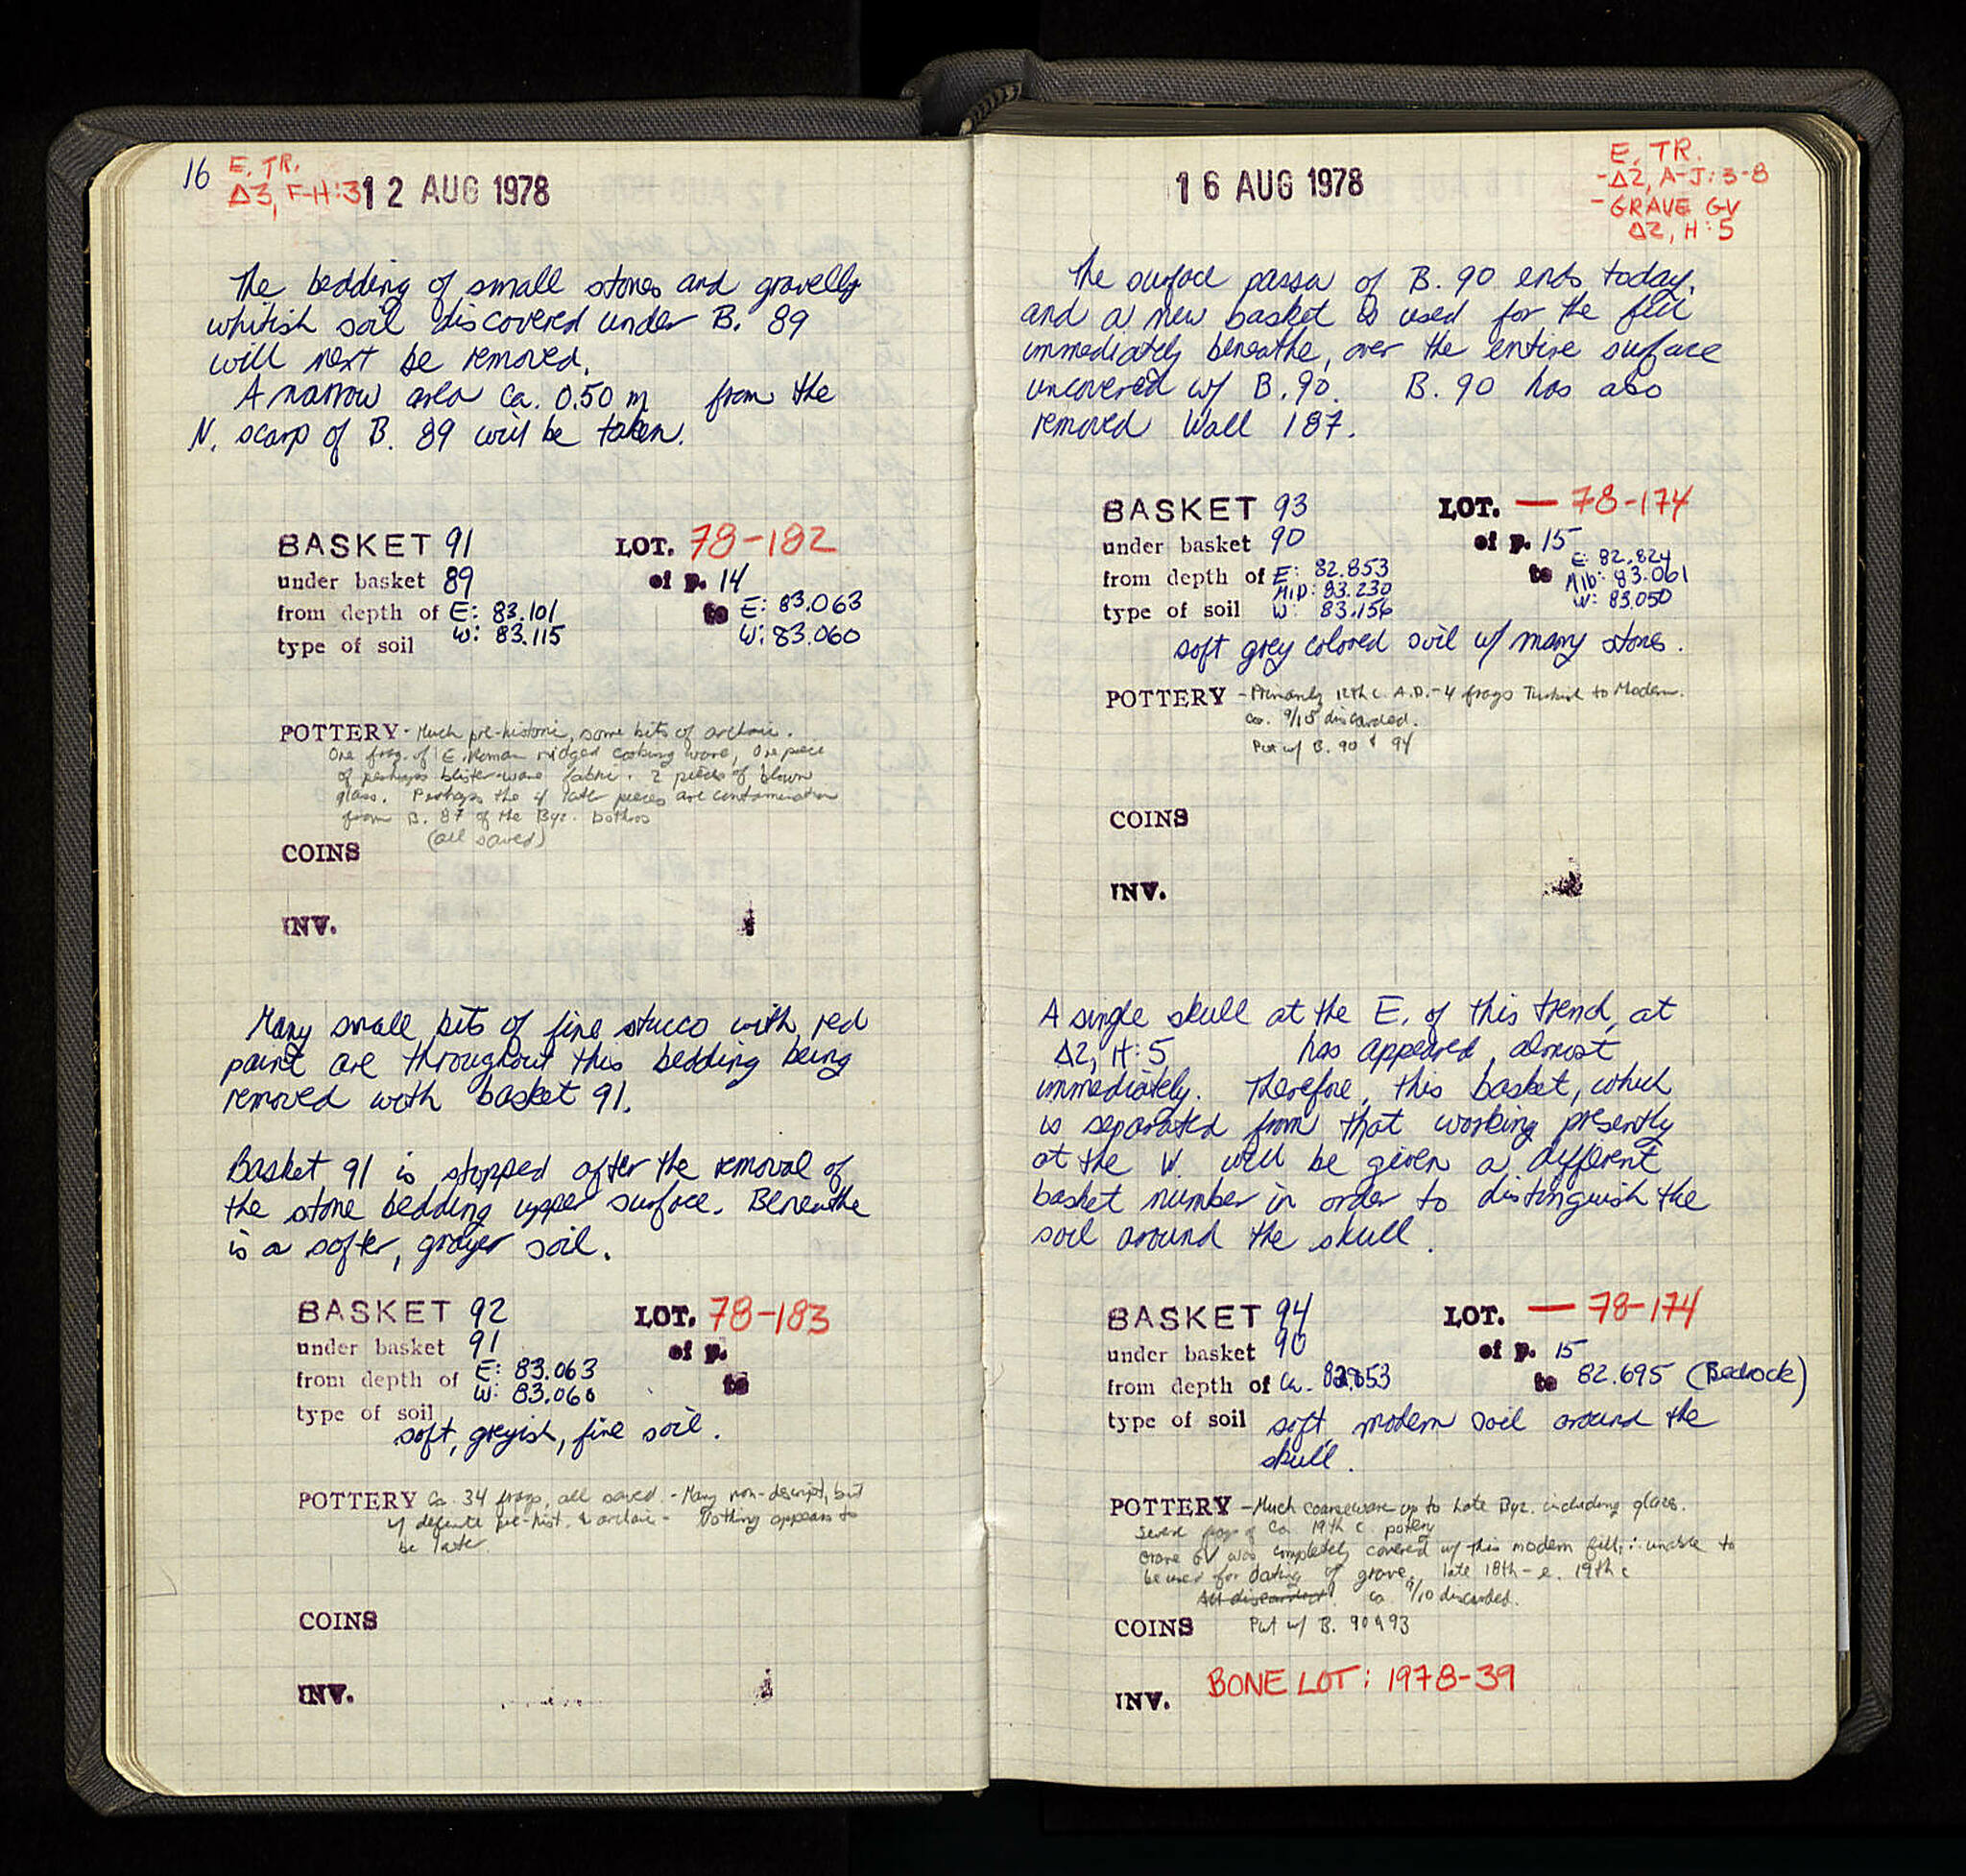 16 E. TR.
Δ3, F-H:3
12 AUG 1978
The bedding of small stones and gravelly
whitish soil discovered under B. 89
will next be removed.
A narrow area ca. 0.50 m from the
N. scarp of B. 89 will be taken.
BASKET 91 LOT. 78-182
under basket 89 of p. 14
from depth of E: 83.101 to E: 83.063
W: 83.115 W: 83.060
type of soil
POTTERY - Much pre-historic, some bits of archaic.
One frag. of E. Roman ridged cooking ware, One piece
of perhaps blister-ware fabric. 2 pieces of blown
glass. Perhaps the 4 late pieces are contamination
from B. 87 of the Byz. bothros
(all saved)
COINS
INV.
Many small bits of fine stucco with red
paint are throughout this bedding being
removed with basket 91.
Basket 91 is stopped after the removal of
the stone bedding upper surface. Beneathe
is a softer, grayer soil.
BASKET 92 LOT. 78-183
under basket 91 of p.
from depth of E: 83.063 to
W: 83.060
type of soil
soft, greyish, fine soil.
POTTERY Ca. 34 frags, all saved. - Many non-descript, but
w/ definite pre-hist. & archaic - Nothing appears to
be later.
COINS
INV.
16 AUG 1978
E. TR.
-Δ2, A-J:3-8
-GRAVE GV
Δ2, H:5
The surface passa of B. 90 ends today,
and a new basket is used for the fill
immediately beneathe, over the entire surface
uncovered w/ B. 90. B. 90 has also
removed Wall 187.
BASKET 93 LOT. — 78-174
under basket 90 of p. 15
from depth of E: 82.853 to E: 82.824
MID: 83.230 Mid: 83.061
type of soil W: 83.156 W: 83.050
soft grey colored soil w/ many stones.
POTTERY - Primarily 12th c. A.D. - 4 frags Turkish to Modern.
ca. 9/10 discarded.
Put w/ B. 90 & 94
COINS
INV.
A single skull at the E. of this trend, at
Δ2, H:5 has appeared, almost
immediately. Therefore, this basket, which
is separated from that working presently
at the W will be given a different
basket number in order to distinguish the
soil around the skull.
BASKET 94 LOT. — 78-174
under basket 90 of p. 15
from depth of ca. 82.853 to 82.695 (Bedrock)
type of soil soft modern soil around the
skull.
POTTERY - Much coarseware up to Late Byz. including glazes.
Several frags of ca 19th c. pottery
Grave GV was completely covered w/ this modern fill, ∴ unable to
be used for dating of grave. late 18th - e. 19th c
All discarded. ca 9/10 discarded.
COINS Put w/ B. 90 & 93
BONE LOT: 1978-39
INV.